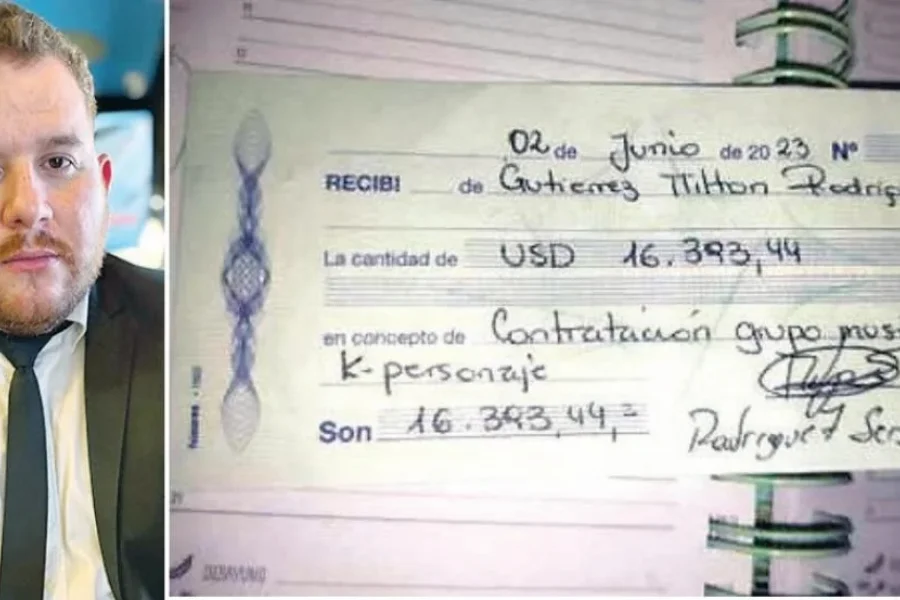 02 de Junio de 2023 Nº
RECIBI de Gutierrez Milton Rodrig
La cantidad de USD 16.393,44
en concepto de Contratación grupo mus
K-personaje
Son 16.393,44,=
Rodriguez Ser